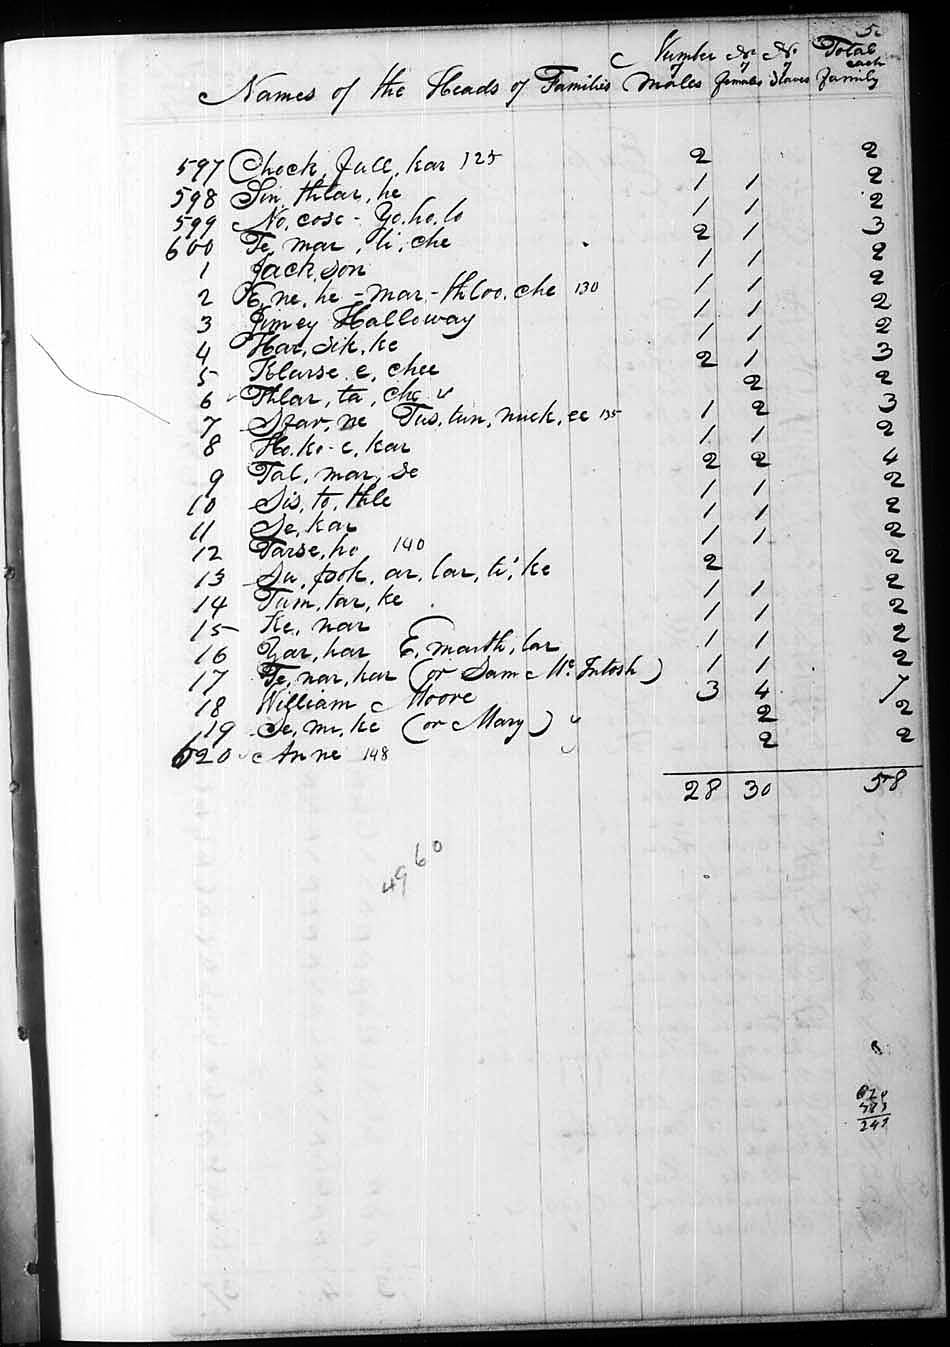 Number No No Total
of of of each
Names of the Heads of Families Males females Slaves family
597 Chock, Jull, kar 125 2 2
598 Sin, thlar, he 1 1 2
599 No, cose - Yo, ho, lo 1 1 2
600 Te, mar, li, che 2 1 3
1 Jack, son 1 1 2
2 E, ne, he - mar - thloo, che 130 1 1 2
3 Jimey Halloway 1 1 2
4 Har, sik, ke 1 1 2
5 Klarse, e, chee 2 1 3
6 Thlar, ta, che 2 2
7 Spar, ne Tus, tun, nuck, ee 135 1 2 3
8 Ho, ko - e, kar 1 1 2
9 Tal, mar, se 2 2 4
10 Sis, to, thle 1 1 2
11 Se, kar 1 1 2
12 Tarse, ho 140 1 1 2
13 Su, pook, ar, lar, ti, ke 2 2
14 Tum, tar, ke 1 1 2
15 Ke, nar 1 1 2
16 Yar, har E, marth, lar 1 1 2
17 Te, nar, har (or Sam McIntosh) 1 1 2
18 William Moore 3 4 7
19 Se, me, ke (or Mary) 2 2
620 Anne 148 2 2
28 30 58
49 60
620